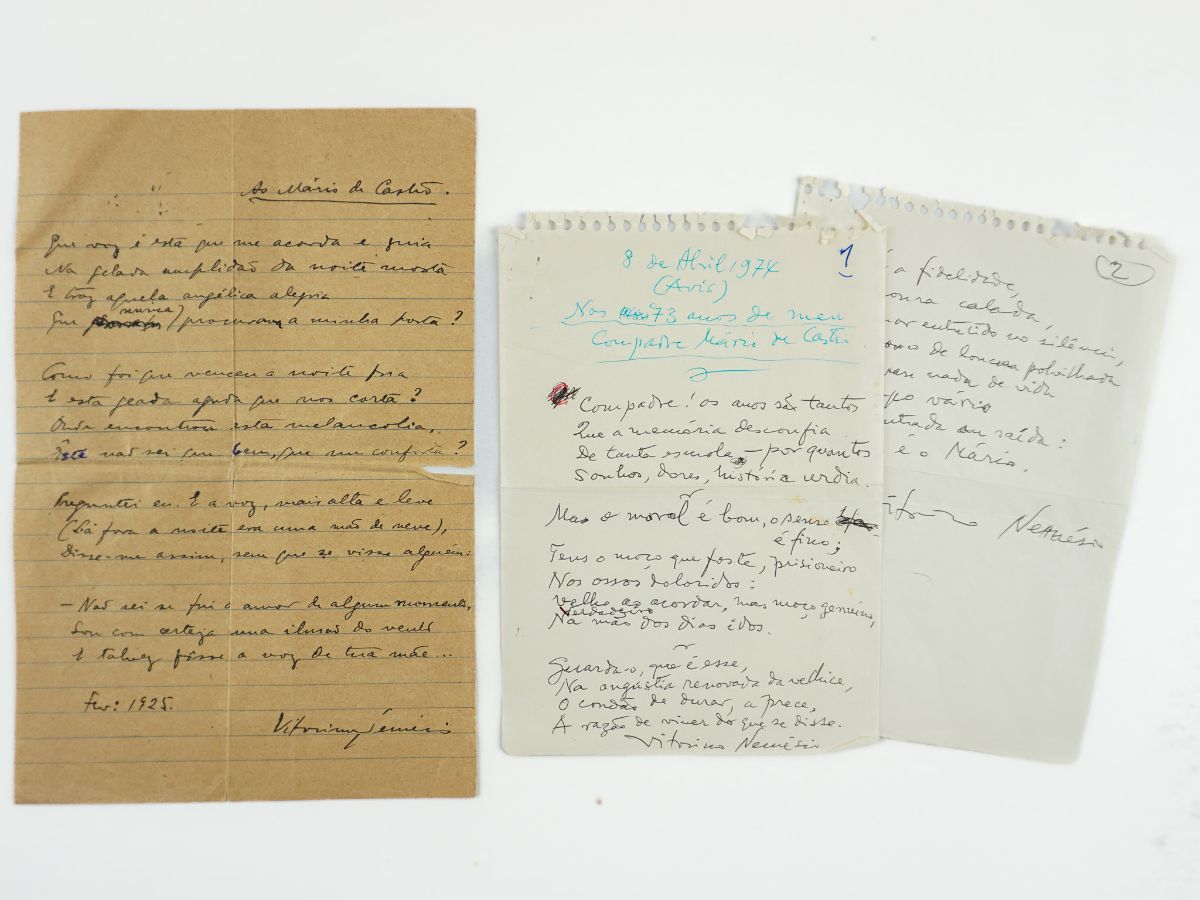 Ao Mário de Castro.
Que voz é esta que me acorda e guia
Na gelada amplidão da noite morta
E traz aquela angélica alegria
nunca
Que procuram a minha porta?
Como foi que venceu a noite fria
E esta geada aguda que nos corta?
Onde encontrou esta melancolia,
Êste não sei que bem, que me conforta?
Preguntei eu. E a voz, mais alta e leve
(Lá fora a noite era uma mão de neve),
Disse-me assim, sem que se visse alguém:
— Não sei se fui o amor de algum momento,
Sou com certeza uma ilusão do vento
E talvez fôsse a voz de tua mãe...
Fev: 1925.
Vitorino Nemésio
1
8 de Abril 1974
(Avis)
Nos 73 anos de meu
Compadre Mário de Castro
Compadre! os anos são tantos
Que a memória desconfia
De tanta escusa — por quantos
Sonhos, dores, história urdia.
Mas o moral é bom, o senso
é fino;
Tens o moço que foste, prisioneiro
Nos ossos doloridos:
Velho ao acordar, mas moço genuíno,
Verdadeiro
Na mão dos dias idos.
Guarda-o, que é esse,
Na angústia renovada da velhice,
O condão de durar, a prece,
A razão de viver do que se disse.
Vitorino Nemésio
2
a fidelidade,
calada,
entretido no silêncio,
de louça polvilhada
nada de vida
vário
entrada ou saída:
é o Mário.
Nemésio